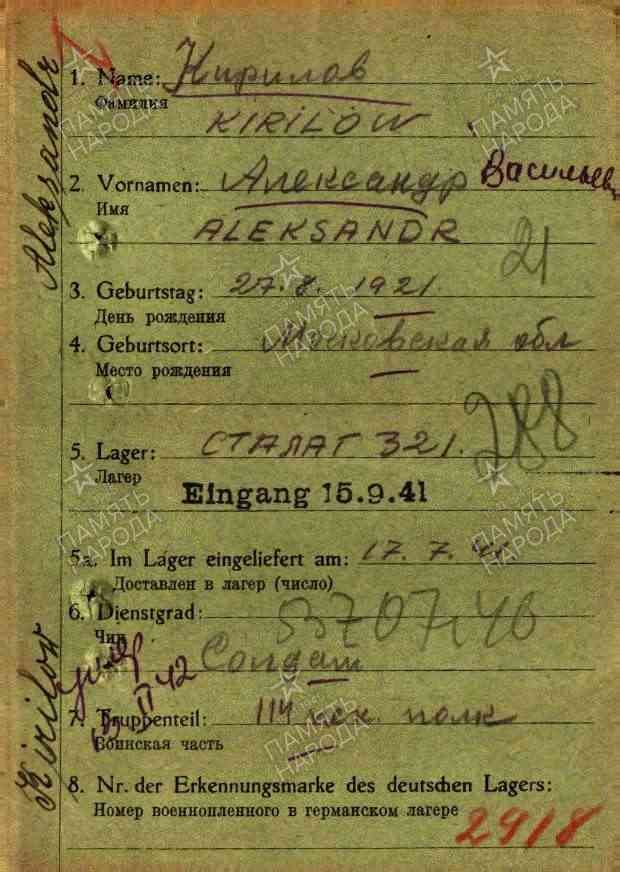 1. Name: Кирилов
Фамилия
KIRILOW
2. Vornamen: Александр Васильев
Имя
ALEKSANDR
21
3. Geburtstag: 27. 8. 1921.
День рождения
4. Geburtsort: Московская обл
Место рождения
288
5. Lager: СТАЛАГ 321.
Лагер
Eingang 15.9.41
5a. Im Lager eingeliefert am: 17. 7. 41
Доставлен в лагер (число)
6. Dienstgrad:
Чин
Солдат
умер
II 42
7. Truppenteil: 114 пех. полк
Воинская часть
8. Nr. der Erkennungsmarke des deutschen Lagers:
Номер военнопленного в германском лагере
2918
Kirilow Aleksandr
ПАМЯТЬ НАРОДА
ПАМЯТЬ НАРОДА
ПАМЯТЬ НАРОДА
ПАМЯТЬ НАРОДА
ПАМЯТЬ НАРОДА
ПАМЯТЬ НАРОДА